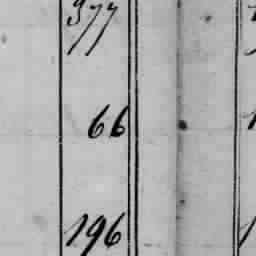 377
66
196